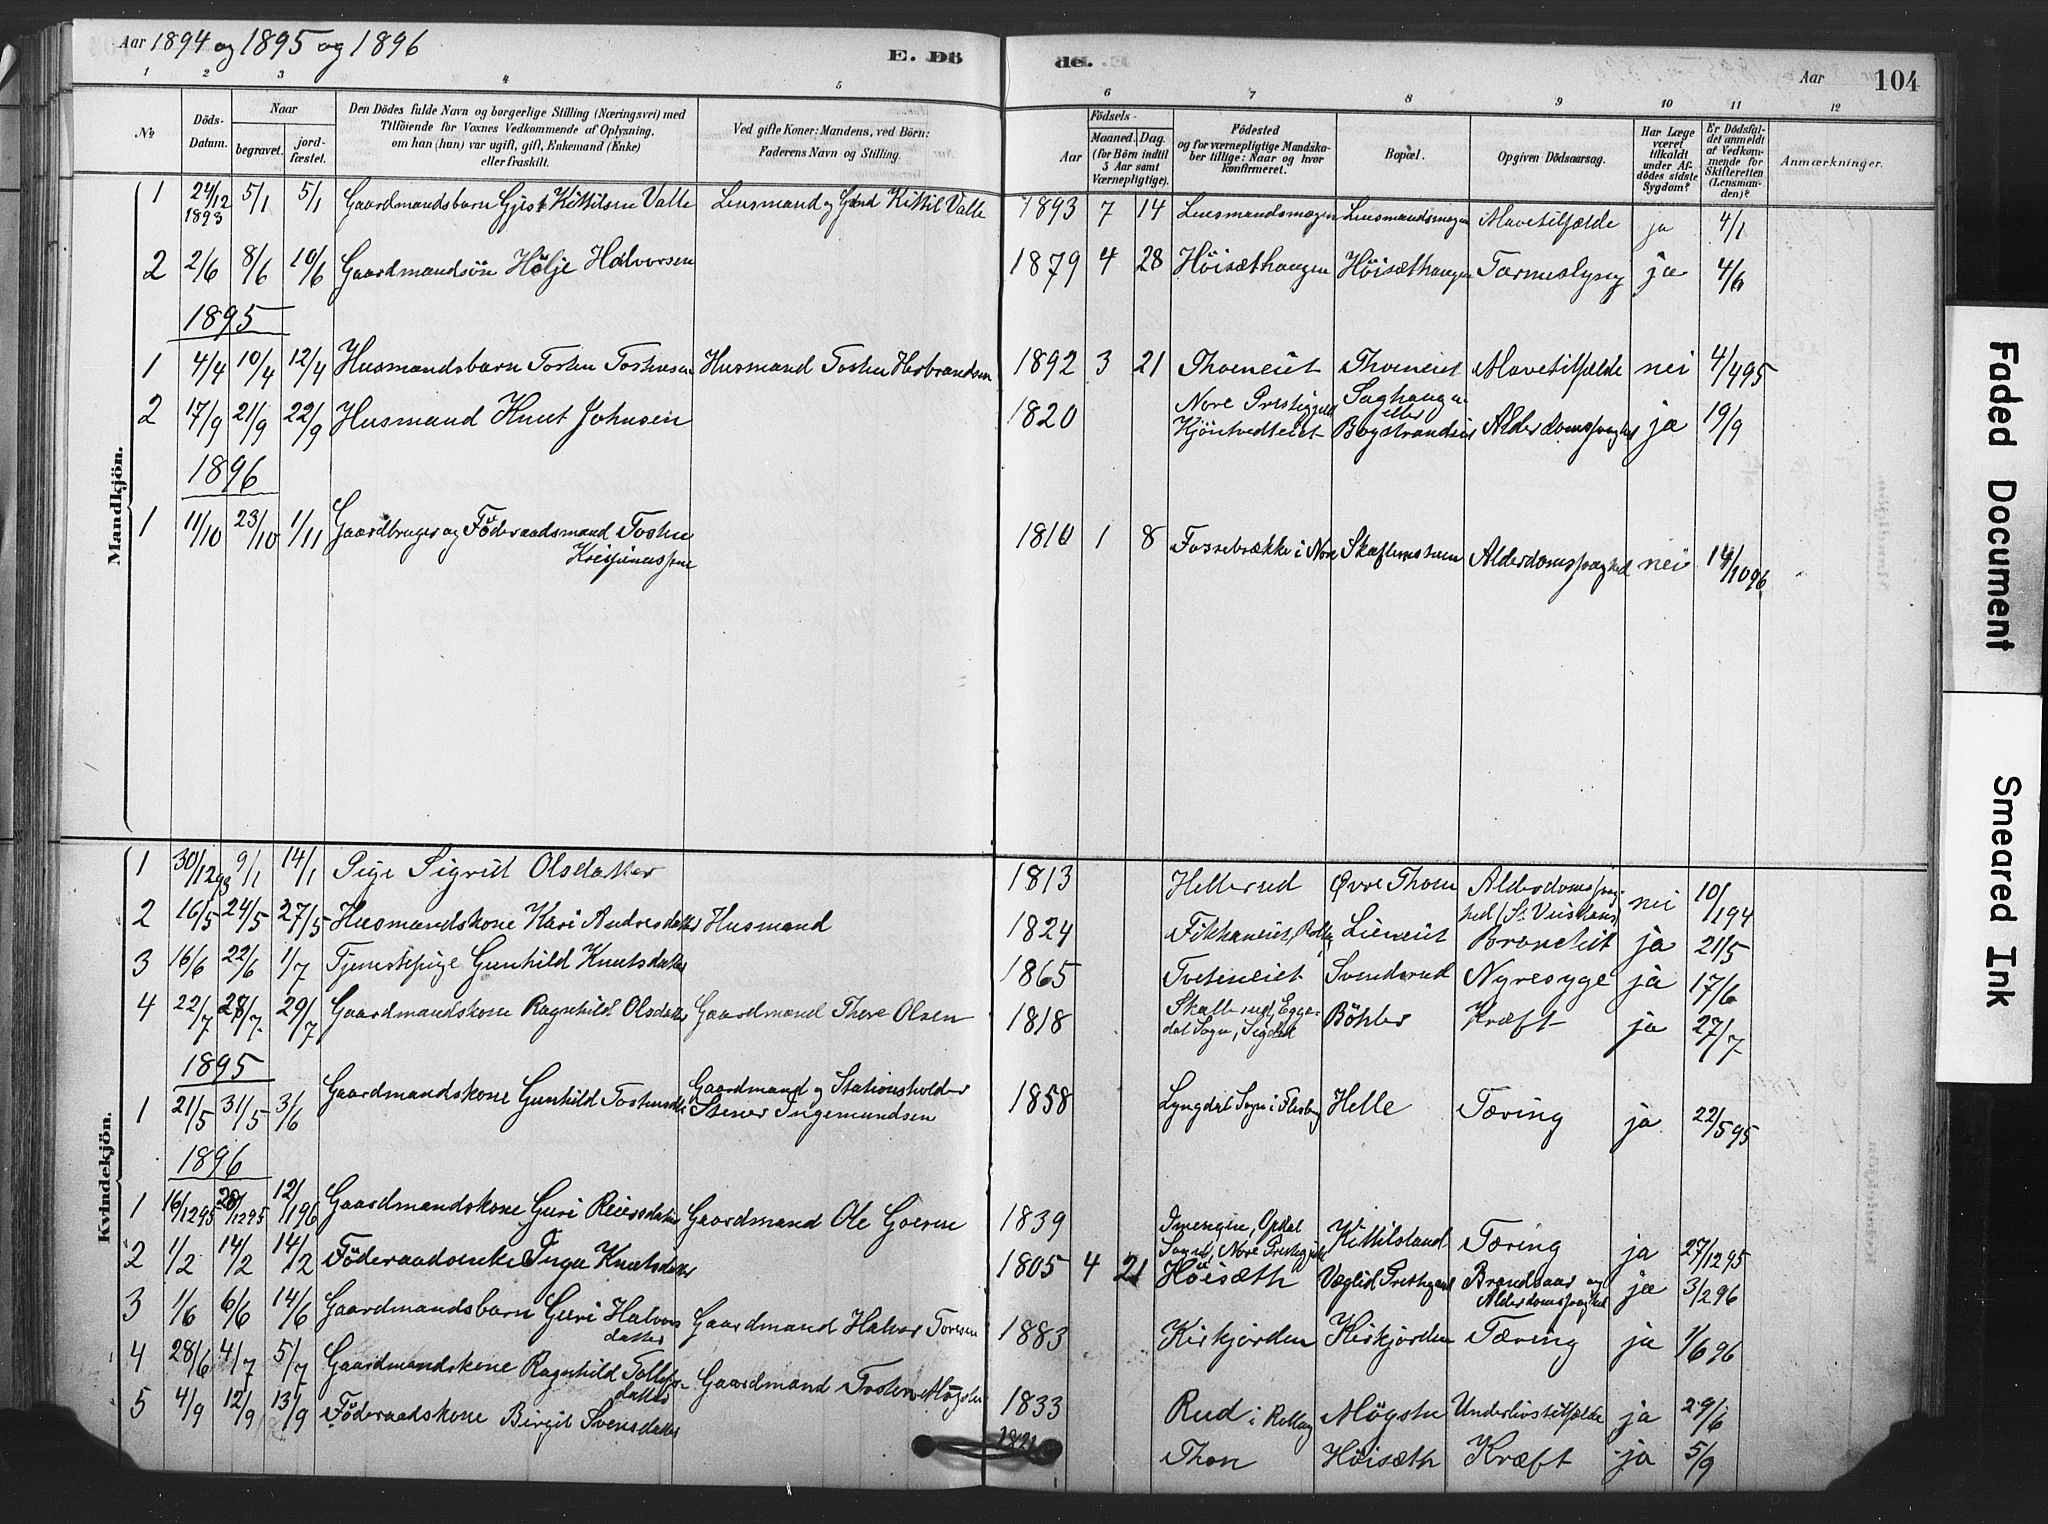 Aar 1894 og 1895 og 1896
E. Dö
de.
Aar
104
1 2 3 4 5 6 7 8 9 10 11 12
No
Döds-Datum.
Naar
begravet.
jord-fæstet.
Den Dödes fulde Navn og borgerlige Stilling (Næringsvei) med
Tilföiende for Voxnes Vedkommende af Oplysning,
om han (hun) var ugift, gift, Enkemand (Enke)
eller fraskilt.
Ved gifte Koner: Mandens, ved Börn:
Faderens Navn og Stilling.
Födsels-
Aar
Maaned. Dag.
(for Börn indtil
5 Aar samt
Værnepligtige).
Födested
og for værnepligtige Mandska-
ber tillige: Naar og hvor
konfirmeret.
Bopæl.
Opgiven Dödsaarsag.
Har Læge
været
tilkaldt
under Af-
dödes sidste
Sygdom?
Er Dödsfal-
det anmeldt
af Vedkom-
mende for
Skifteretten
(Lensman-
den)?
Anmærkninger.
Mandkjön.
1 24/12 1893 5/1 5/1 Gaardmandsbarn Kittilsen Valle Lensmand og Kittil Valle 1893 7 14 Lensmandsmogen Lensmandsmogen Mavetilfælde ja 4/1
2 2/6 8/6 10/6 Gaardmandsön Hölje Halvorsen 1879 4 28 Höisæthaugen Höisæthaugen Tarmeslyng ja 4/6
1895
1 4/4 10/4 12/4 Husmandsbarn Tosten Tostensen Husmand Tosten Herbrandsen 1892 3 21 Thoeneiet Thoeneiet Mavetilfælde nei 4/4 95
2 17/9 21/9 22/9 Husmand Knut Johnsen 1820 Nore Prestegjeld Kjöntvedteiet Saghaugen eller Alderdomssvaghed ja 19/9
1896
1 11/10 23/10 1/11 Gaardbruger og Föderaadsmand Tosten
1810 1 8 Fossebrække i Nore Alderdomssvaghed nei 14/10 96
Kvindekjön.
1 30/12 93 9/1 14/1 Pige Sigrid Olsdatter 1813 Hellerud Øvre Thoen Alderdomssvag-
hed nei 10/1 94
2 16/5 24/5 27/5 Husmandskone Kari Andresdatter Husmand 1824 Lieneiet ja 21/5
3 16/6 22/6 1/7 Tjenestepige Gunhild Knutsdatter 1865 Tveteneiet Svendsrud Nyresyge ja 17/6
4 22/7 28/7 29/7 Gaardmandskone Ragnhild Olsdatter Gaardmand Thore Olsen 1818 Skallerud, Egge-
dal Sogn, Sigdal Böhler Kræft ja 27/7
1895
1 21/5 31/5 3/6 Gaardmandskone Gunhild Gaardmand og Stationsholder
Stener Ingemundsen 1858 Lyngdal Sogn i Flesberg Helle Tæring ja 22/5 95
1896
1 16/12 95 28/12 95 12/1 96 Gaardmandskone Guri Reiersdatter Gaardmand Ole 1839 Imengen, Opdal
Sogn, Nore Prestegjeld Kittilsland Tæring ja 27/12 95
2 1/2 14/2 14/2 Föderaadsenke Inga Knutsdatter 1805 4 21 Höisæth Væglid Prestegaard Brandsaar og
Alderdomssvaghed ja 3/2 96
3 1/6 6/6 14/6 Gaardmandsbarn Guri Halvors
datter Gaardmand Halvor Toresen 1883 Kirkjorden Kirkjorden Tæring ja 1/6 96
4 28/6 4/7 5/7 Gaardmandskone Ragnhild Tollefs
datter Gaardmand Tosten Mögster 1833 Rud i Rollag Mögster Underlivstilfælde ja 29/6
5 4/9 12/9 13/9 Föderaadskone Birgit Svensdatter 1821 Thon Höisæth Kræft ja 5/9
Faded Document
Smeared Ink